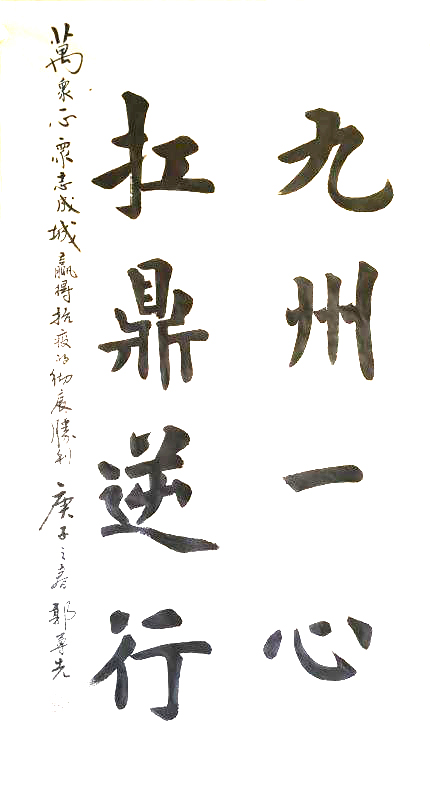 九州一心
扛鼎逆行
萬衆一心衆志成城贏得抗疫的彻底勝利 庚子之春 郭先